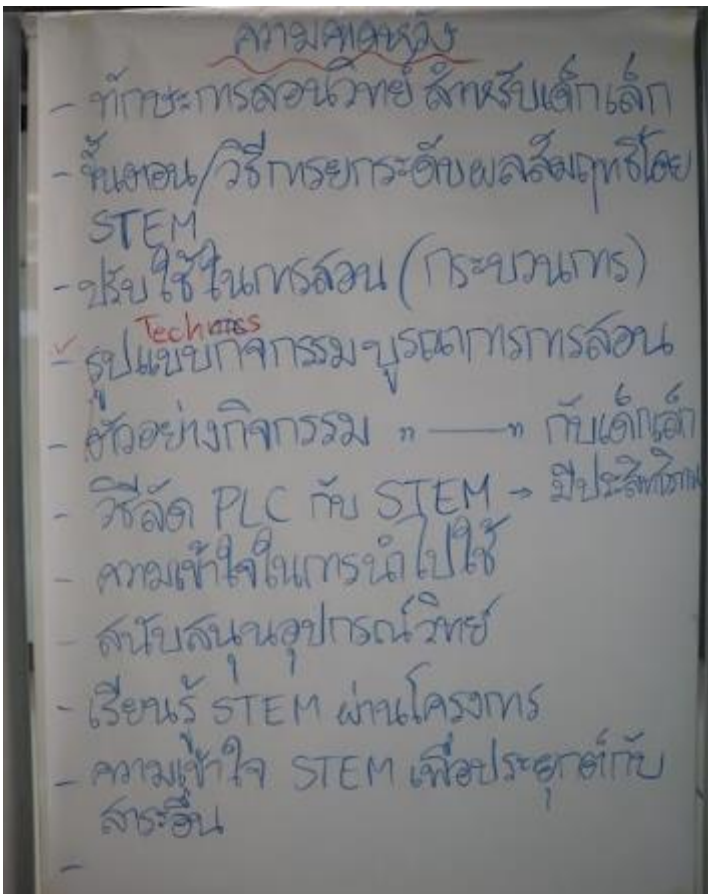 ความคาดหวัง
- ทักษะการสอนวิทย์ สำหรับเด็กเล็ก
- ขั้นตอน/วิธีการยกระดับผลสัมฤทธิ์โดย
STEM
- ปรับใช้ในการสอน (กระบวนการ)
Technics
- รูปแบบกิจกรรมบูรณาการการสอน
- ตัวอย่างกิจกรรม " —— " กับเด็กเล็ก
- วิธีลัด PLC กับ STEM → มีประสิทธิภาพ
- ความเข้าใจในการนำไปใช้
- สนับสนุนอุปกรณ์วิทย์
- เรียนรู้ STEM ผ่านโครงการ
- ความเข้าใจ STEM เพื่อประยุกต์กับ
สาระอื่น
-